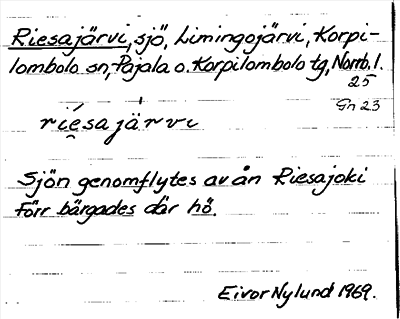 Riesajärvi, sjö, Limingojärvi, Korpi-
lombolo sn, Pajala o. Korpilombolo tg, Norrb. l.
25
Gn 23
riésajärvi
Sjön genomflytes av ån Riesajoki
Förr bärgades där hö.
Eivor Nylund 1969.